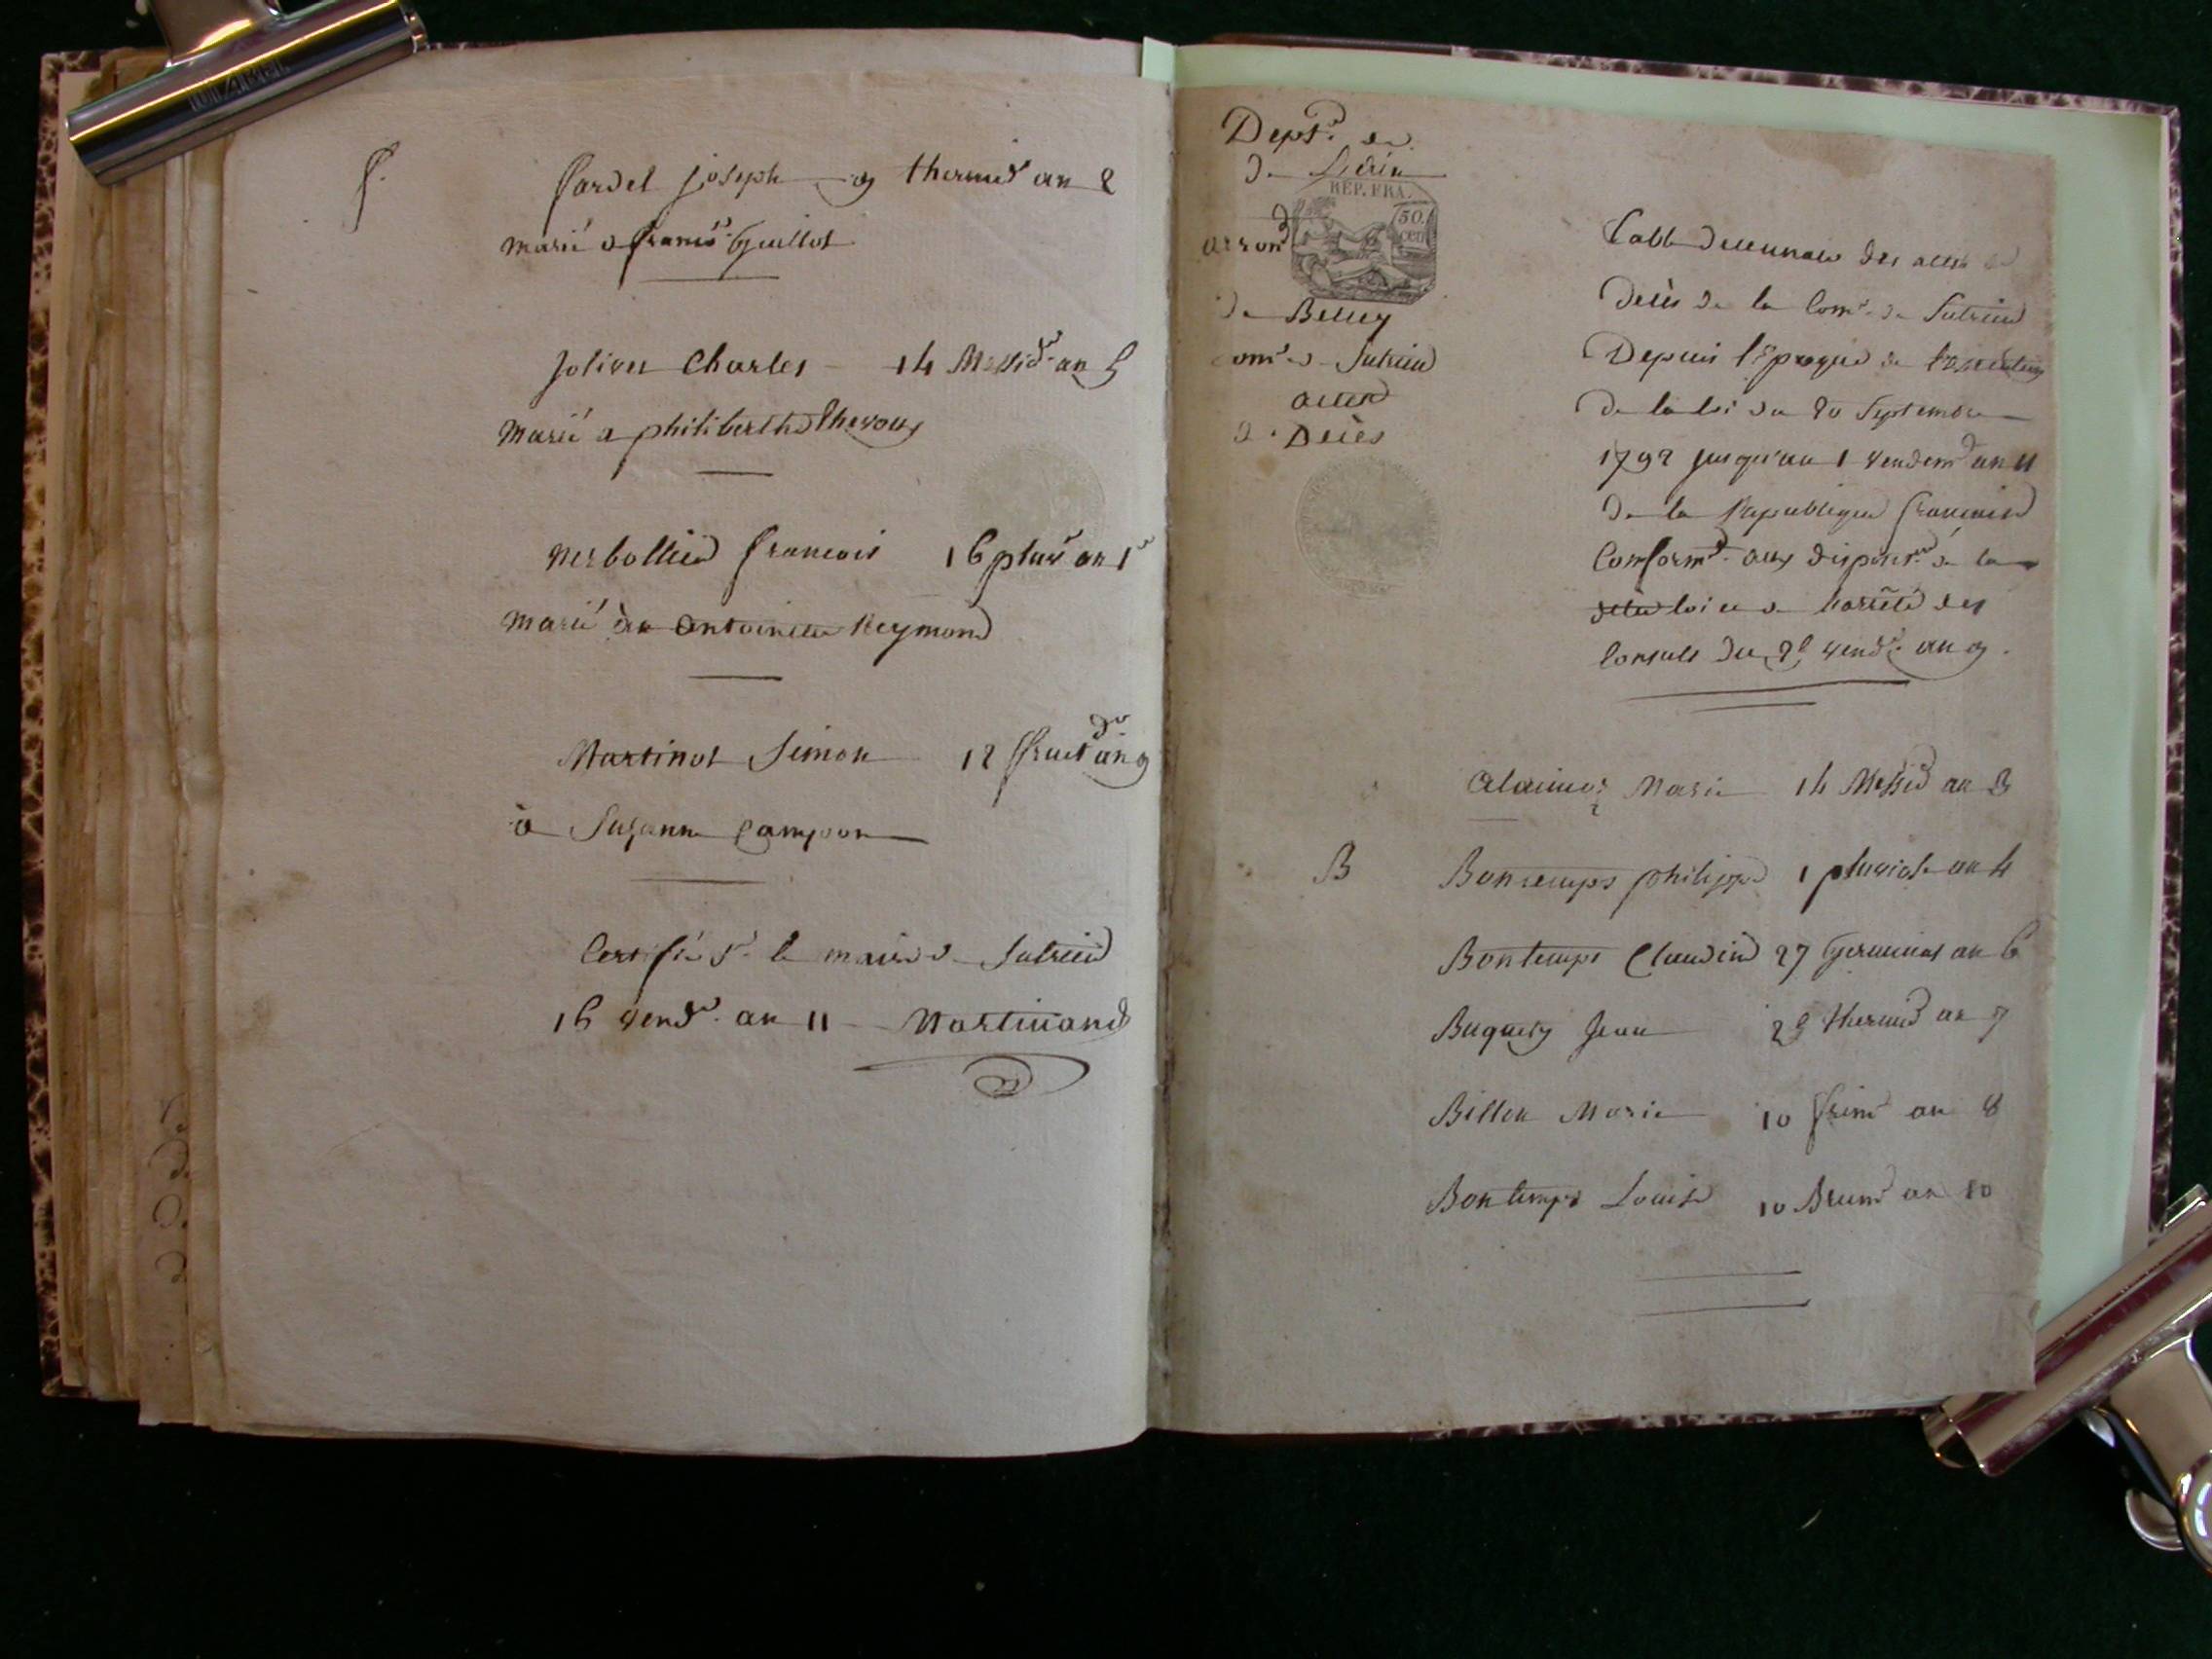 f.
fardel joseph 9 thermid an 2
marié a franc.se Guillot
Jolivet Charles 14 Messid.r an 5
Marié a philiberthe
françois 16 pluv an 1er
Marié antoinette Reymond
Martinot Simon 12 fruct.dor an 9
à Suzanne
Certifié p.r le maire de Sutrieu
16 vend.re an 11 Martinand
Dept. de
de L'ain
REP. FRA.
50.
cen
arrond
de Belley
com.e de Sutrieu
actes
de Décès
Table decennale des actes de
Décès de la Com.e de Sutrieu
Depuis l'Epoque de
de la loi du 20 Septembre
1792 jusqu'au 1 vendem.re an 11
de la Republique francaise
Conform.t aux disposit.ns de la
loi et de l'arrêté des
Consuls du 25 vend.re an 9.
Marie 14 Messid an 3
B
Bontemps philippe 1 pluviose an 4
Bontemps Claudine 27 Germinal an 6
Buguety Jean 25 thermid an 7
Billon Marie 10 frim an 8
Bontemps Louise 10 Brum an 10